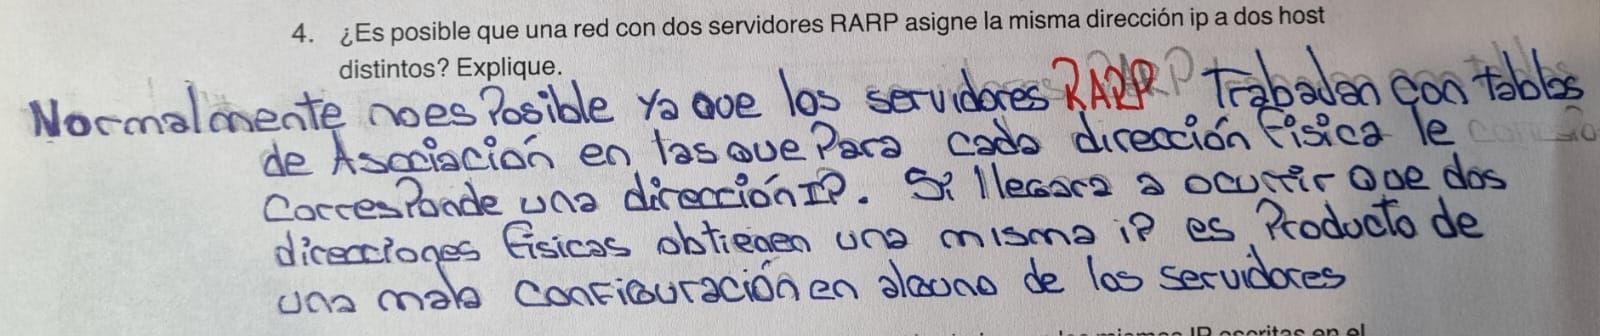 4. ¿Es posible que una red con dos servidores RARP asigne la misma dirección ip a dos host
distintos? Explique.
Normalmente no es Posible ya que los servidores RARP Trabadan con tablas
de Asociación en las que Para cada dirección Física le
Corresponde una dirección IP. Si llegara a ocurrir que dos
direcciones físicas obtienen una misma iP es Producto de
una mala configuración en alguno de los servidores